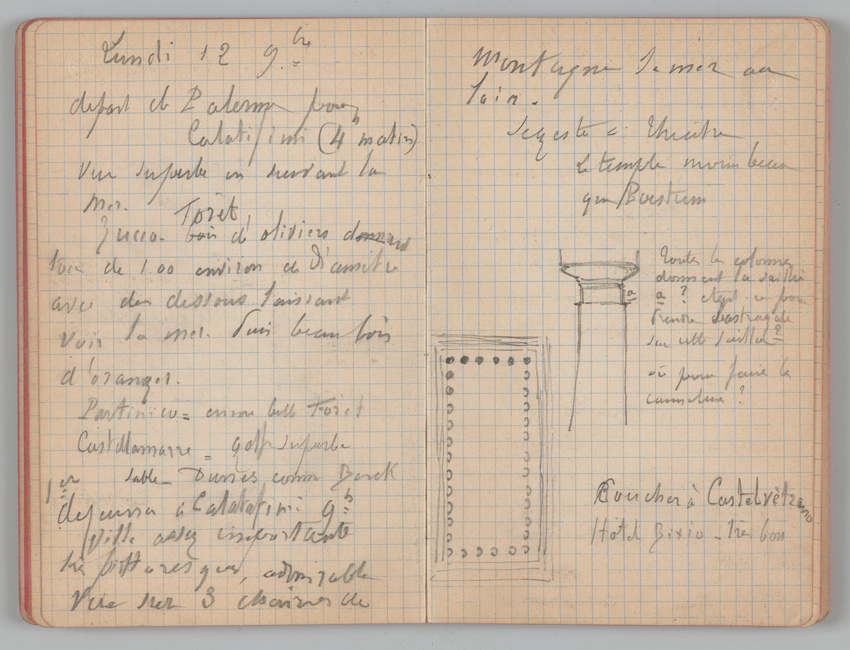 Lundi 12 9.bre
depart de Palerme pour
Calatifimi (4h matin)
Vue superbe en suivant la
mer. Forêt
Zucco. bois d'oliviers
de 100 environ de Diamètre
avec des dessous laissant
voir la mer. Puis beau bois
d'oranger.
Partinico = encore belle Foret
Castellamarre = golfe superbe
sable - Dunes comme Berck
1er dejeuner à Calatafimi 9h
Ville assez importante
très pittoresque, admirable
Vue sur 3 chaines de
Montagne la mer au
loin.
Segeste à Theatre
Le temple moins beau
que Poestum
Toutes les colonnes
donnent la saillie
a
a ? etant ce pour
prendre l'astragale
sur cette saillie ?
où pour faire la
cannelure ?
Coucher à Castelvetrano
Hôtel Bixio - très bon